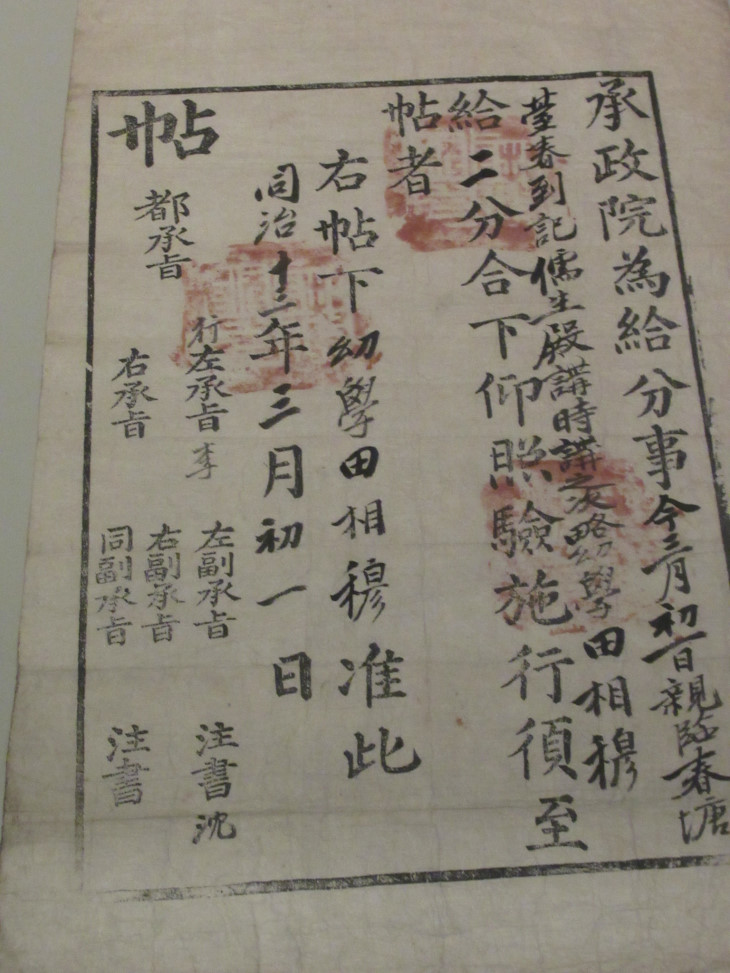 承政院為給分事今三月初一日親臨春塘
臺春到記儒生殿講時講之次略幼學田相穆
給二分合下仰照驗施行須至
帖者
右帖下幼學田相穆准此
同治十三年三月初一日
帖
都承旨
行左承旨李
右承旨
左副承旨
右副承旨
同副承旨
注書沈
注書